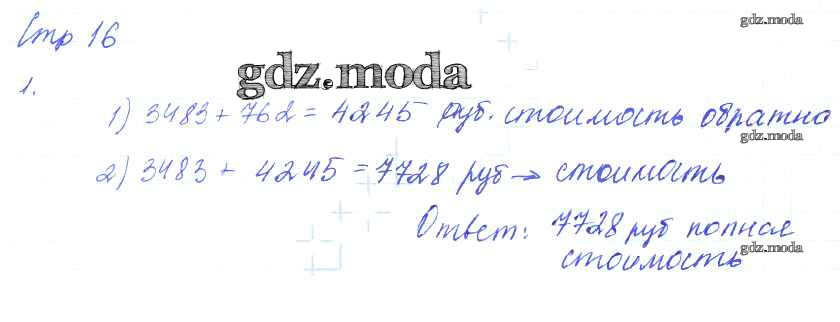 Стр 16
gdz.moda
1.
gdz.moda
1) 3483 + 762 = 4245 руб. стоимость обратно
gdz.moda
2) 3483 + 4245 = 7728 руб → стоимость
Ответ: 7728 руб полная
gdz.moda
стоимость
gdz.moda